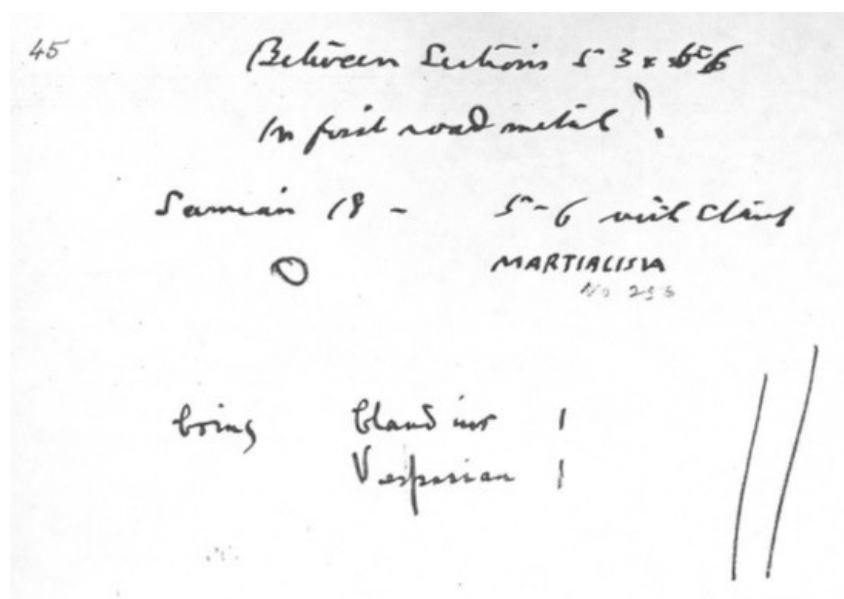 45
Between Sections 5 3
In first road metal ?
Samian 18 - 5-6 with Claud
MARTIALISM
No 2
Coins Claudius 1
Vespasian 1